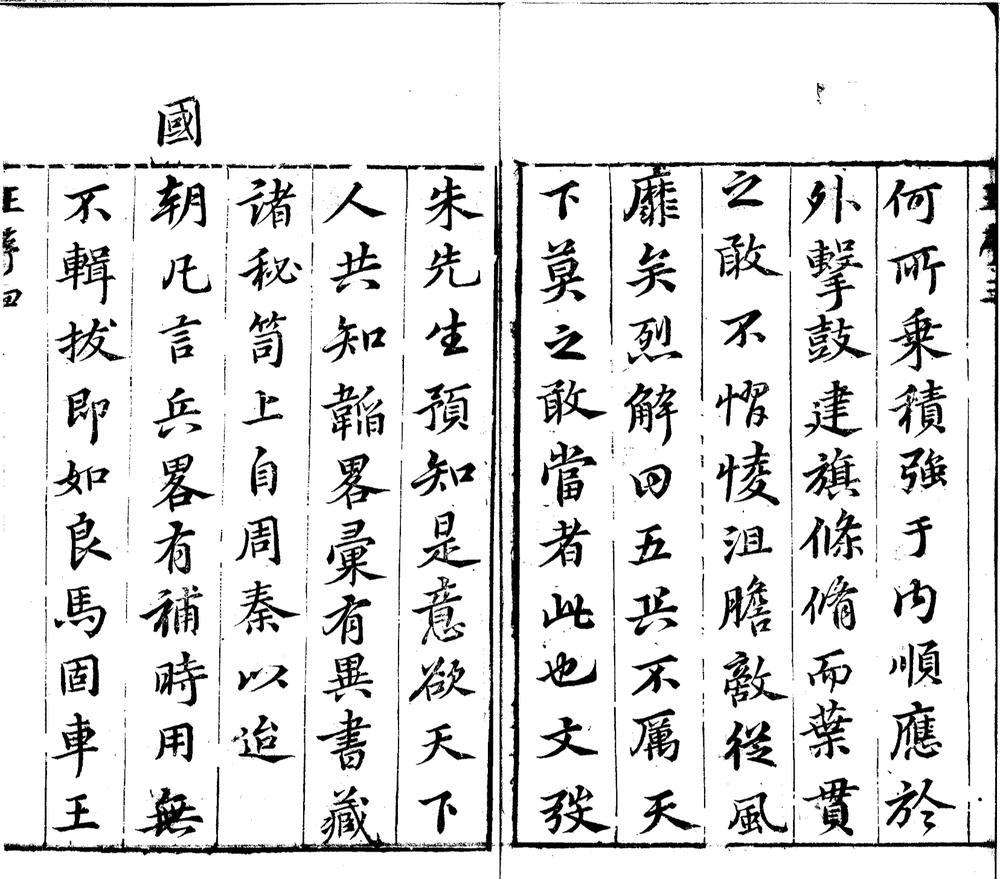 何所乗積強于内順應於
外擊鼓建旗條脩而葉貫
之敢不慴悛沮膽敵從風
靡矣烈解四五兵不厲天
下莫之敢當者此也文發
朱先生預知是意欲天下
人共知韜畧彙有異書藏
諸秘笥上自周秦以迨
國
朝凡言兵畧有補時用無
不輯拔即如良馬固車王